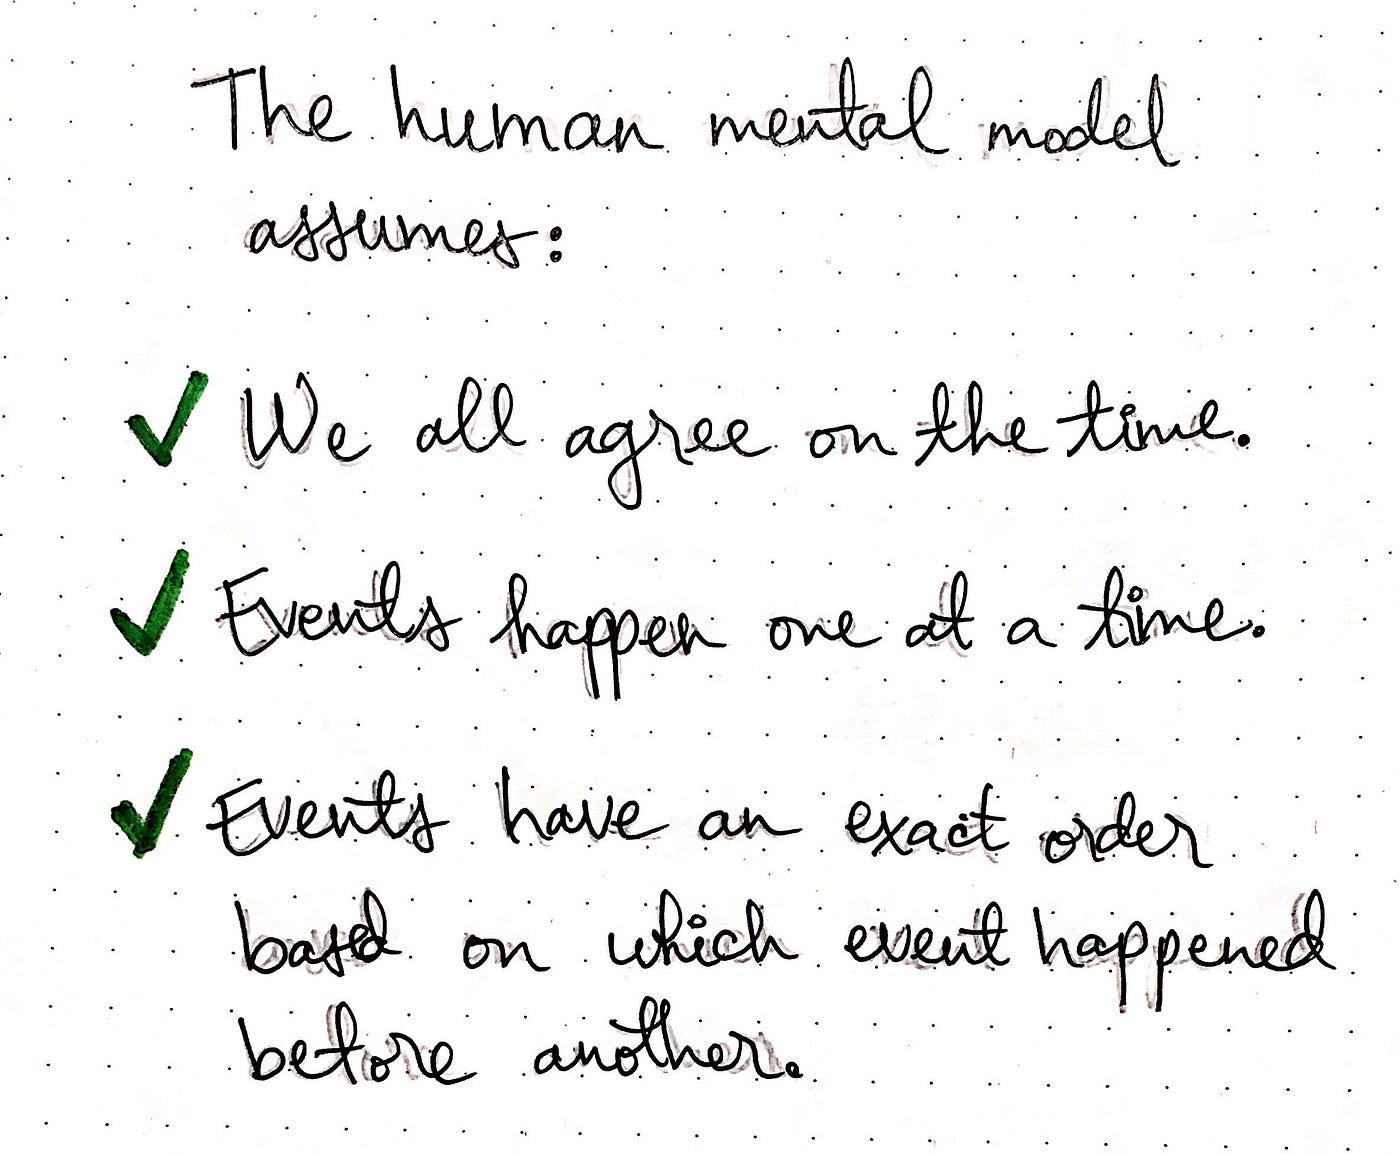 The human mental model
assumes:
✓ We all agree on the time.
✓ Events happen one at a time.
✓ Events have an exact order
based on which event happened
before another.